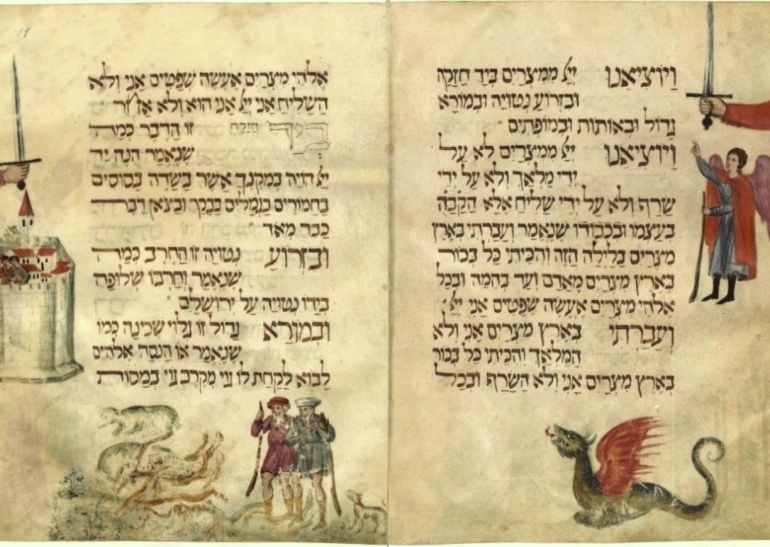 ויוציאנו ייי ממצרים ביד חזקה
ובזרוע נטויה ובמורא
גדול ובאותות ובמופתים
ויוציאנו ייי ממצרים לא על
ידי מלאך ולא על ידי
שרף ולא על ידי שליח אלא הקבה
בעצמו ובכבודו שנאמר ועברתי בארץ
מצרים בלילה הזה והכיתי כל בכור
בארץ מצרים מאדם ועד בהמה ובכל
אלהי מצרים אעשה שפטים אני ייי
ועברתי בארץ מצרים אני ולא
המלאך והכיתי כל בכור
בארץ מצרים אני ולא השרף ובכל
אלהי מצרים אעשה שפטים אני ולא
השליח אני ייי אני הוא ולא אחר
ביד חזקה זו הדבר כמה
שנאמר הנה יד
ייי הויה במקנך אשר בשדה בסוסים
בחמורים בגמלים בבקר ובצאן דבר
כבד מאד
ובזרוע נטויה זו החרב כמה
שנאמר וחרבו שלופה
בידו נטויה על ירושלם
ובמורא גדול זו גלוי שכינה כמו
שנאמר או הנסה אלהים
לבוא לקחת לו גוי מקרב גוי במסות